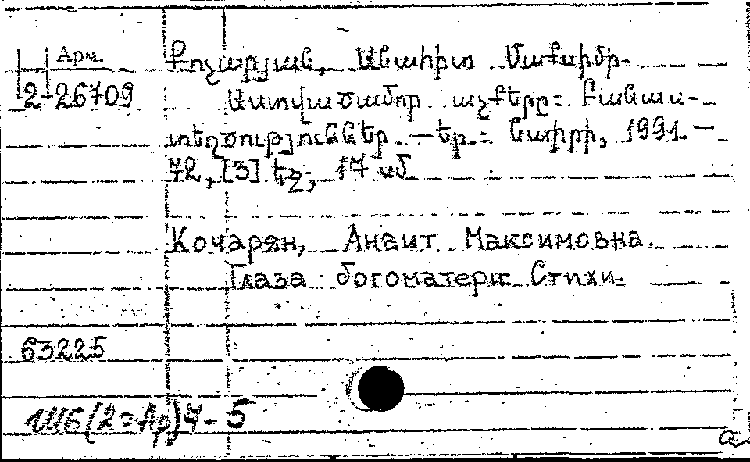 Арм.
2-26709
Քոչարյան, Անահիտ Մաքսիմի.
Աստվածամոր աչքերը: Բանաս-
տեղծություններ. — Եր.: Նաիրի, 1991. —
72, [3] էջ; 17 սմ
Кочарян, Анаит Максимовна.
Глаза богоматери: Стихи.
63225
Ш6(2=Ар)7-5